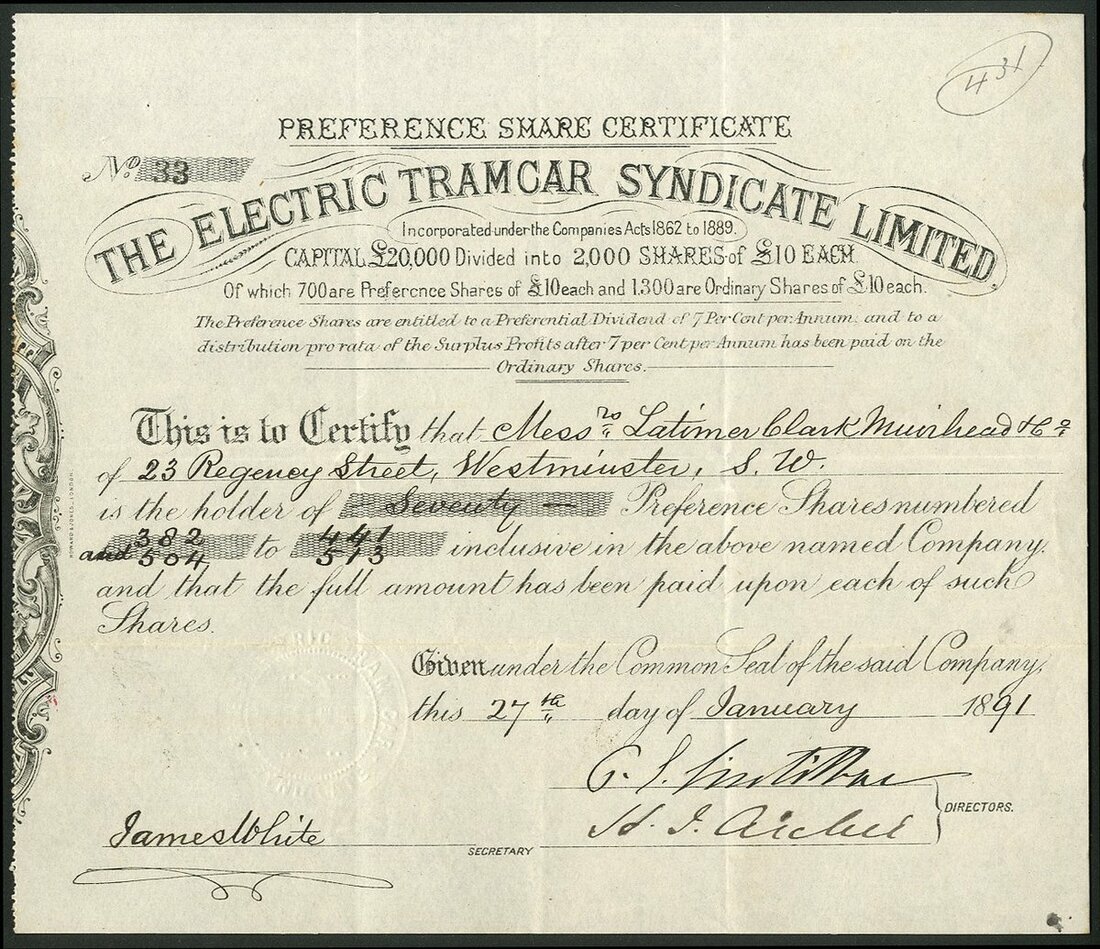 431
PREFERENCE SHARE CERTIFICATE
No. 33
THE ELECTRIC TRAMCAR SYNDICATE LIMITED
Incorporated under the Companies Acts 1862 to 1889.
CAPITAL £20,000 Divided into 2,000 SHARES of £10 EACH.
Of which 700 are Preference Shares of £10 each and 1.300 are Ordinary Shares of £10 each.
The Preference Shares are entitled to a Preferential Dividend of 7 Per Cent per Annum, and to a
distribution pro rata of the Surplus Profits after 7 per Cent per Annum has been paid on the
Ordinary Shares.
This is to Certify that Messrs Latimer Clark Muirhead & Co
of 23 Regency Street, Westminster, S. W.
is the holder of Seventy — Preference Shares numbered
382 to 441
and 504 513 inclusive in the above named Company.
and that the full amount has been paid upon each of such
Shares.
Given under the Common Seal of the said Company,
this 27th day of January 1891
James White SECRETARY
H. J. Archer
DIRECTORS.